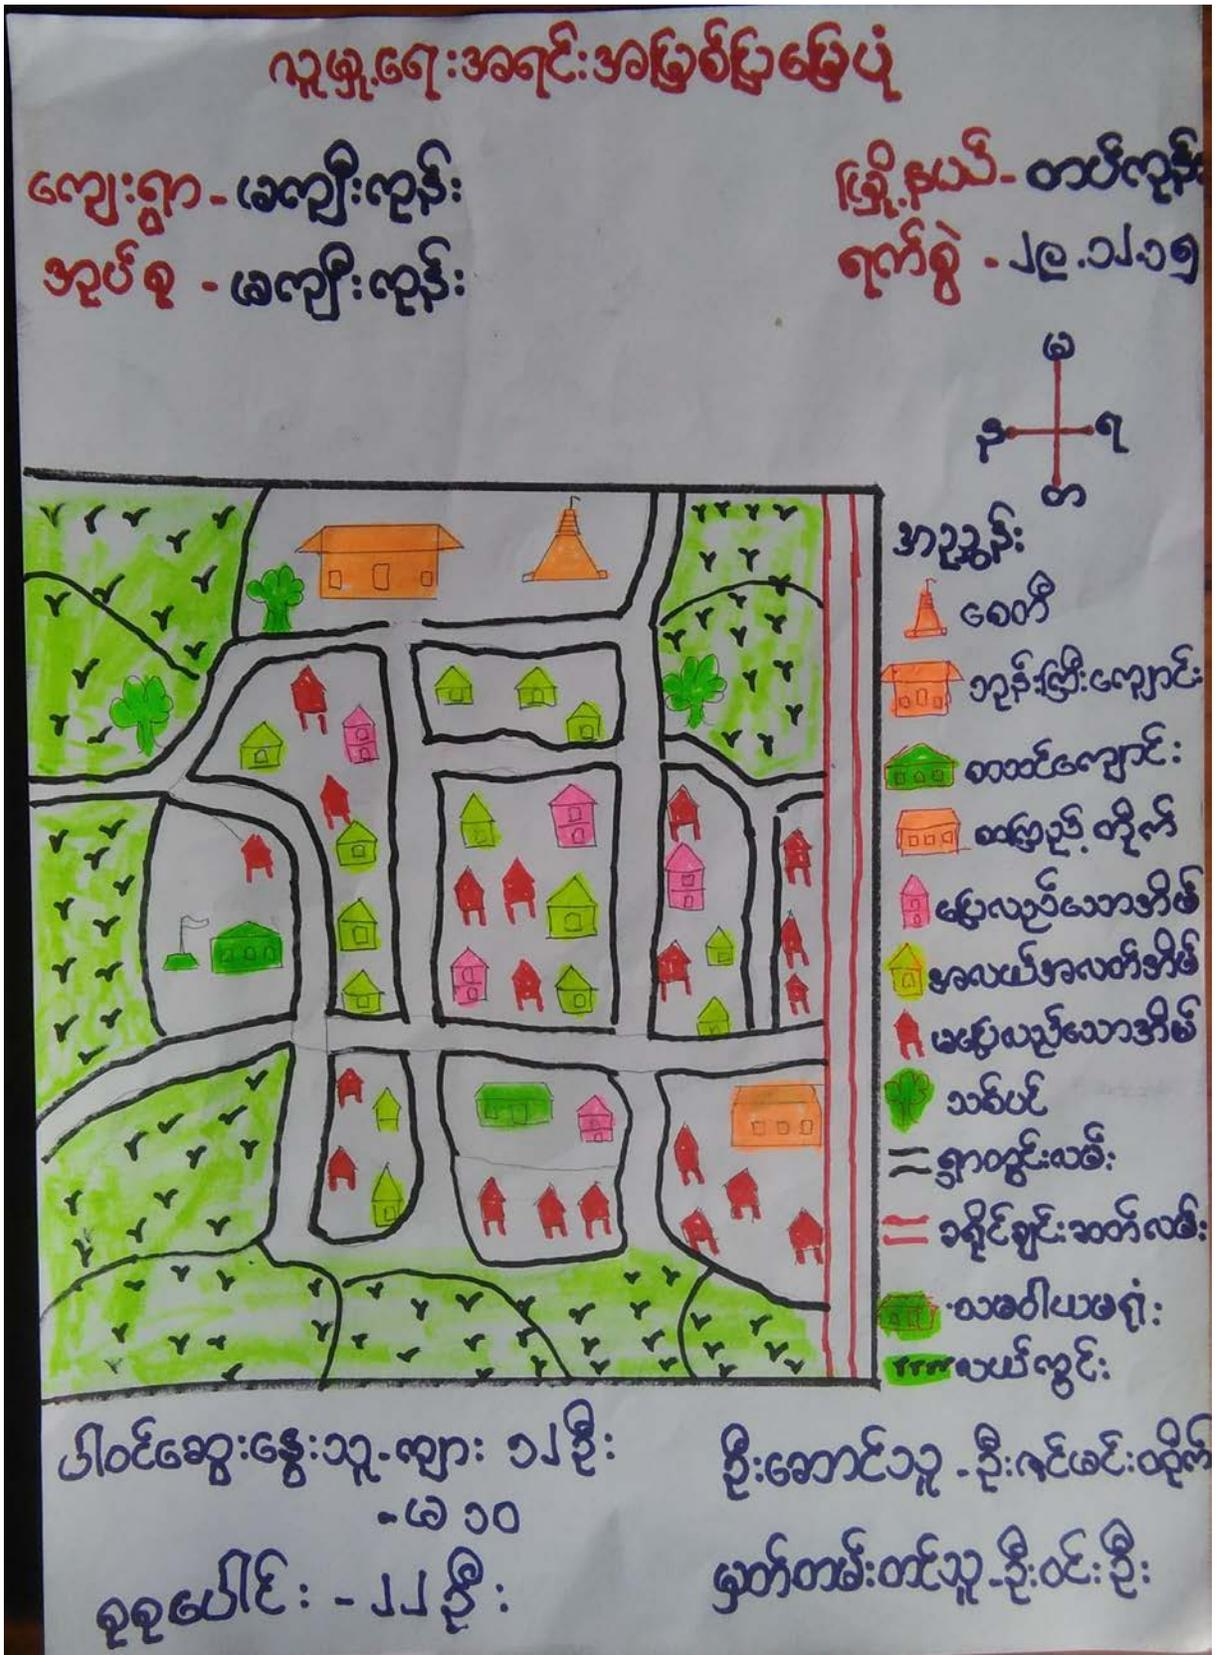 လူမှုရေးအရင်းအမြစ်ပြမြေပုံ
ကျေးရွာ - မကျီးကုန်း
မြို့နယ် - တပ်ကုန်း
အုပ်စု - မကျီးကုန်း
ရက်စွဲ - ၂၉.၁၂.၁၅
မ
န
ရ
တ
အညွှန်း
စေတီ
ဘုန်းကြီးကျောင်း
စာသင်ကျောင်း
စာကြည့်တိုက်
ပြေလည်သောအိမ်
အလယ်အလတ်အိမ်
မပြေလည်သောအိမ်
သစ်ပင်
ရွာတွင်းလမ်း
ခရိုင်ချင်းဆက်လမ်း
သမဝါယမရုံး
လယ်ကွင်း
ပါဝင်ဆွေးနွေးသူ-ကျား ၁၂ ဦး
- မ ၁၀
စုစုပေါင်း - ၂၂ ဦး
ဦးဆောင်သူ - ဦးဇင်မင်းထိုက်
မှတ်တမ်းတင်သူ - ဦးဝင်းဦး